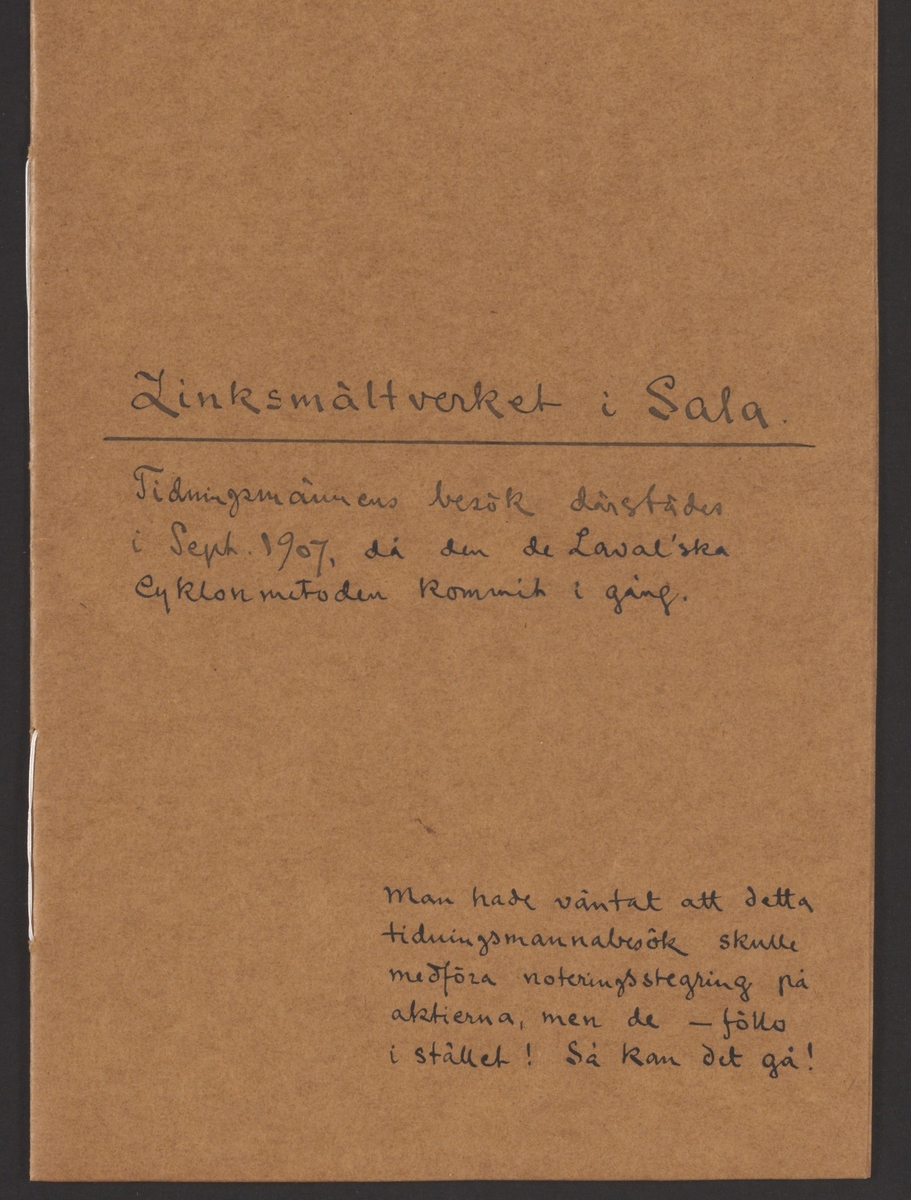 Zinksmältverket i Sala.
Tidningsmännens besök därstädes
i Sept. 1907, då den de Laval'ska
Cyklonmetoden kommit i gång.
Man hade väntat att detta
tidningsmannabesök skulle
medföra noteringsstegring på
aktierna, men de — föllo
i stället! Så kan det gå!